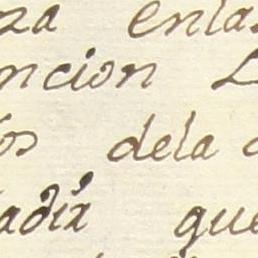 za enlas
ncion L
os dela
adix que